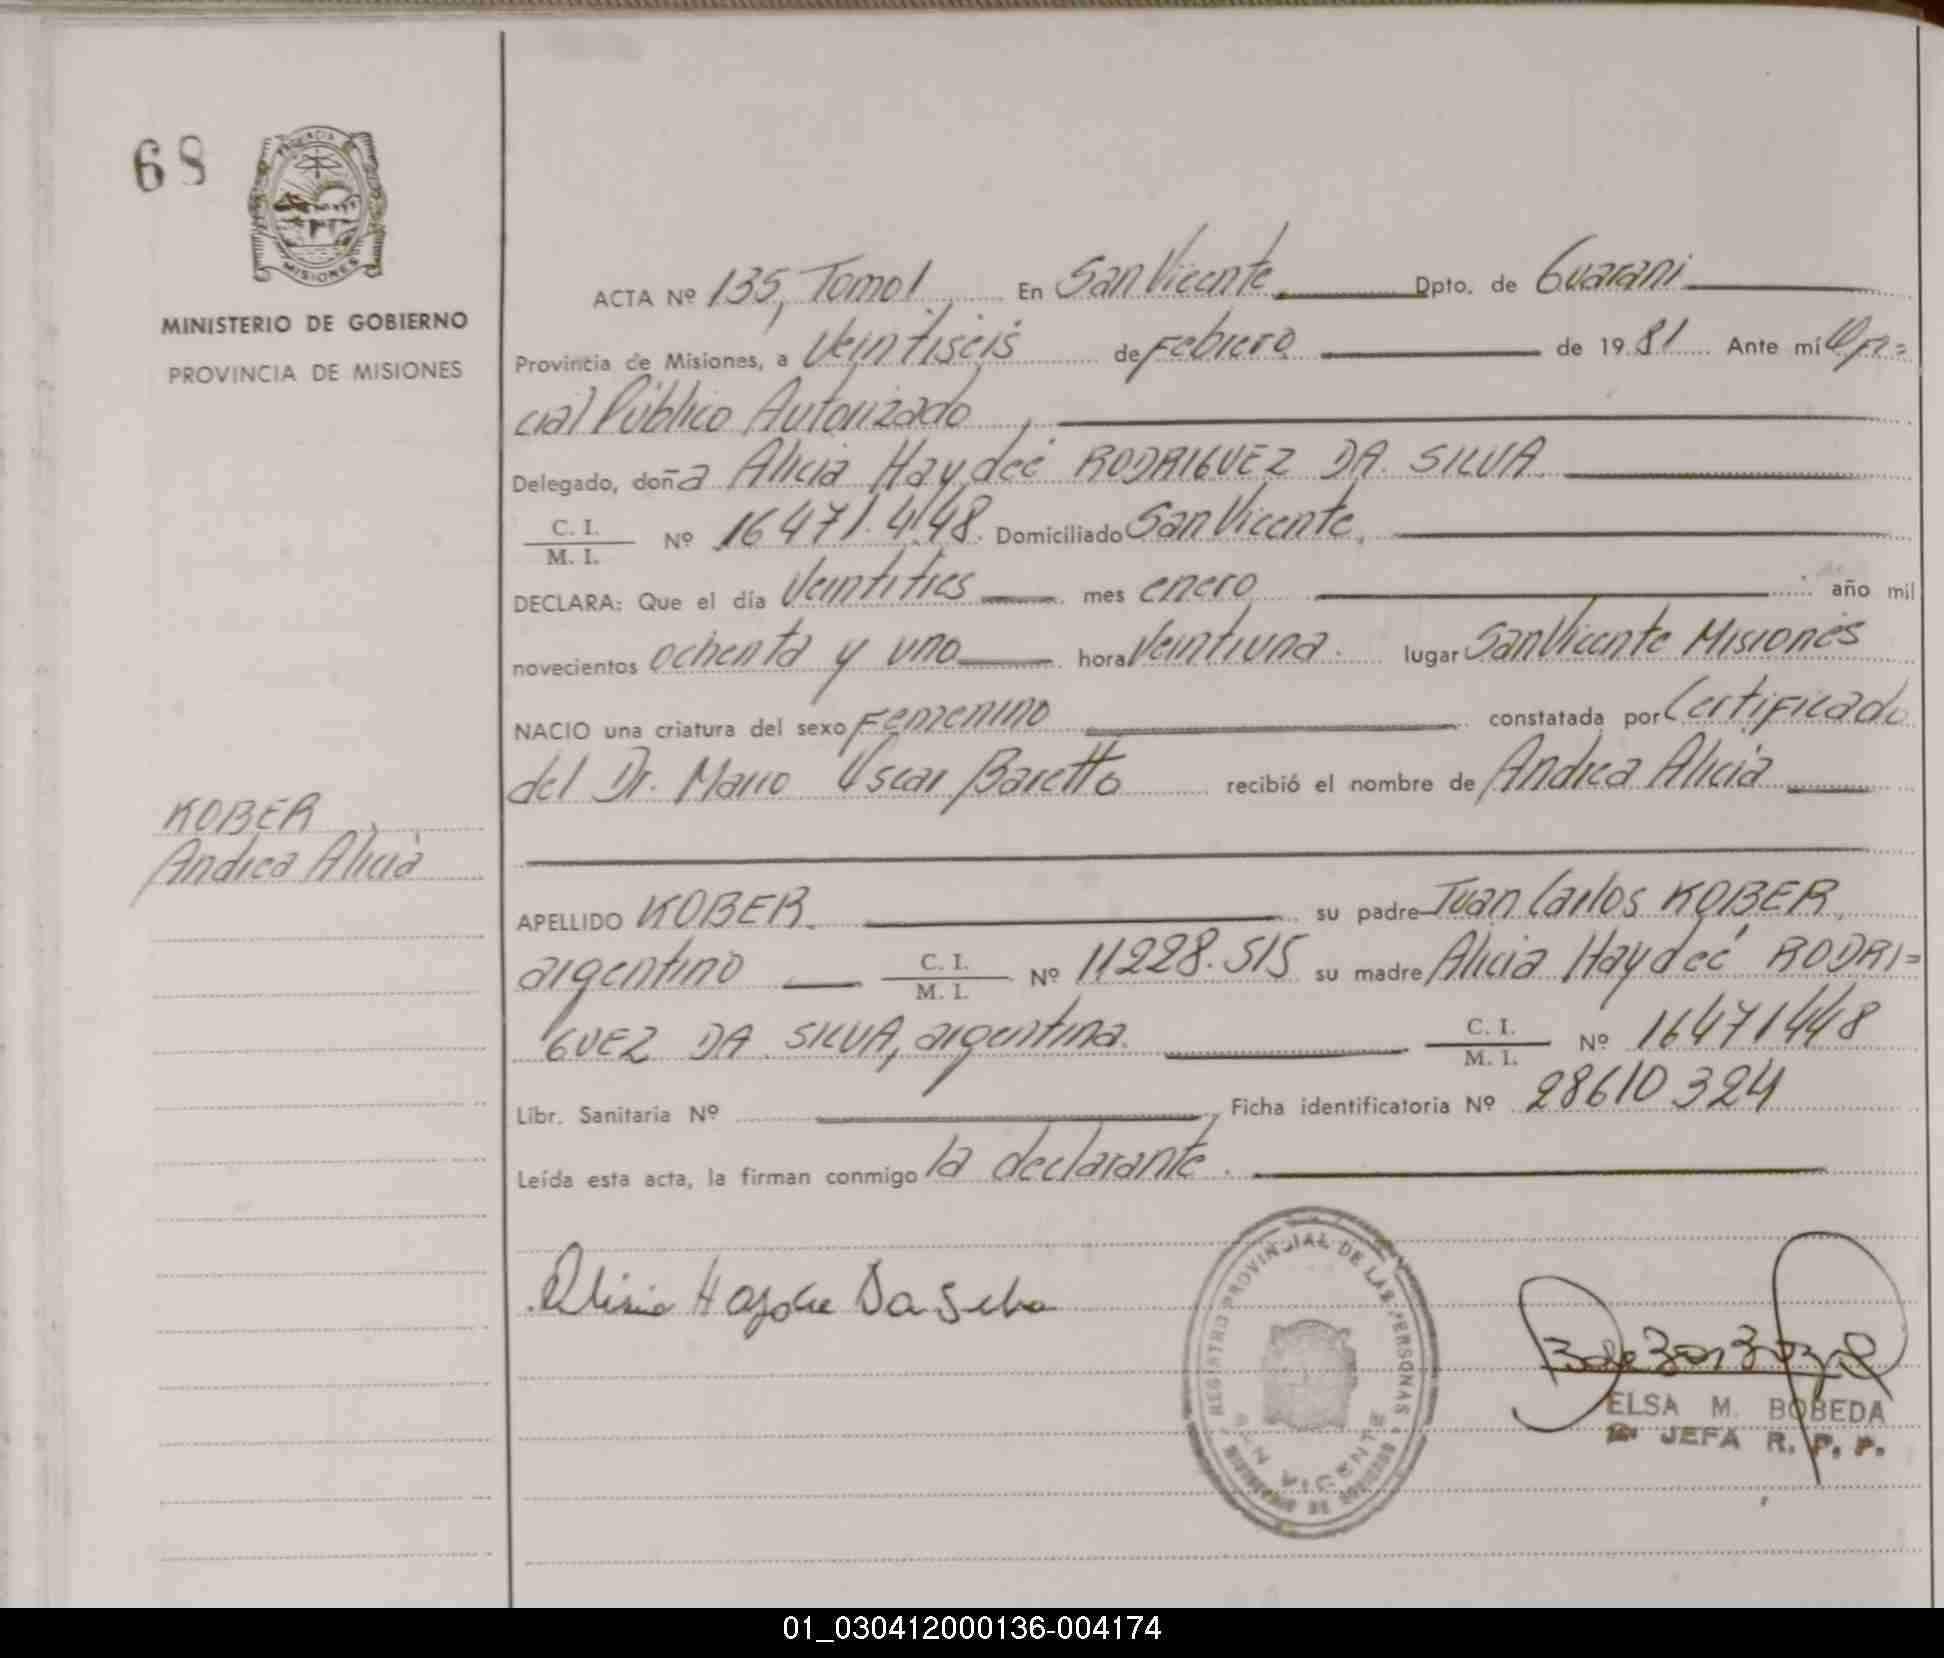 68
PROVINCIA
MISIONES
MINISTERIO DE GOBIERNO
PROVINCIA DE MISIONES
ACTA Nº 135, Tomo I, En San Vicente, Dpto. de Guarani
Provincia de Misiones, a Veintiseis de Febrero de 1981 Ante mí Ofi=
cial Público Autorizado,
Delegado, doña Alicia Haydeé RODRIGUEZ DA SILVA
C. I.
M. I. Nº 16471.448. Domiciliado San Vicente,
DECLARA: Que el día Veintitres mes enero año mil
novecientos ochenta y uno hora Veintiuna. lugar San Vicente Misiones
NACIO una criatura del sexo Femenino constatada por Certificado
del Dr. Mario Oscar Baretto recibió el nombre de Andrea Alicia
KOBER,
Andrea Alicia
APELLIDO KOBER. su padre Juan Carlos KOBER,
argentino C. I.
M. I. Nº 11228.515 su madre Alicia Haydeé RODRI=
GUEZ DA SILVA, argentina. C. I.
M. I. Nº 16471448
Libr. Sanitaria Nº , Ficha identificatoria Nº 28610324
Leída esta acta, la firman conmigo la declarante.
Alisia Haydee Da Silva
REGISTRO PROVINCIAL DE LAS PERSONAS
SAN VICENTE
MINISTERIO DE GOBIERNO
ELSA M. BOBEDA
JEFA R. P. P.
01_030412000136-004174